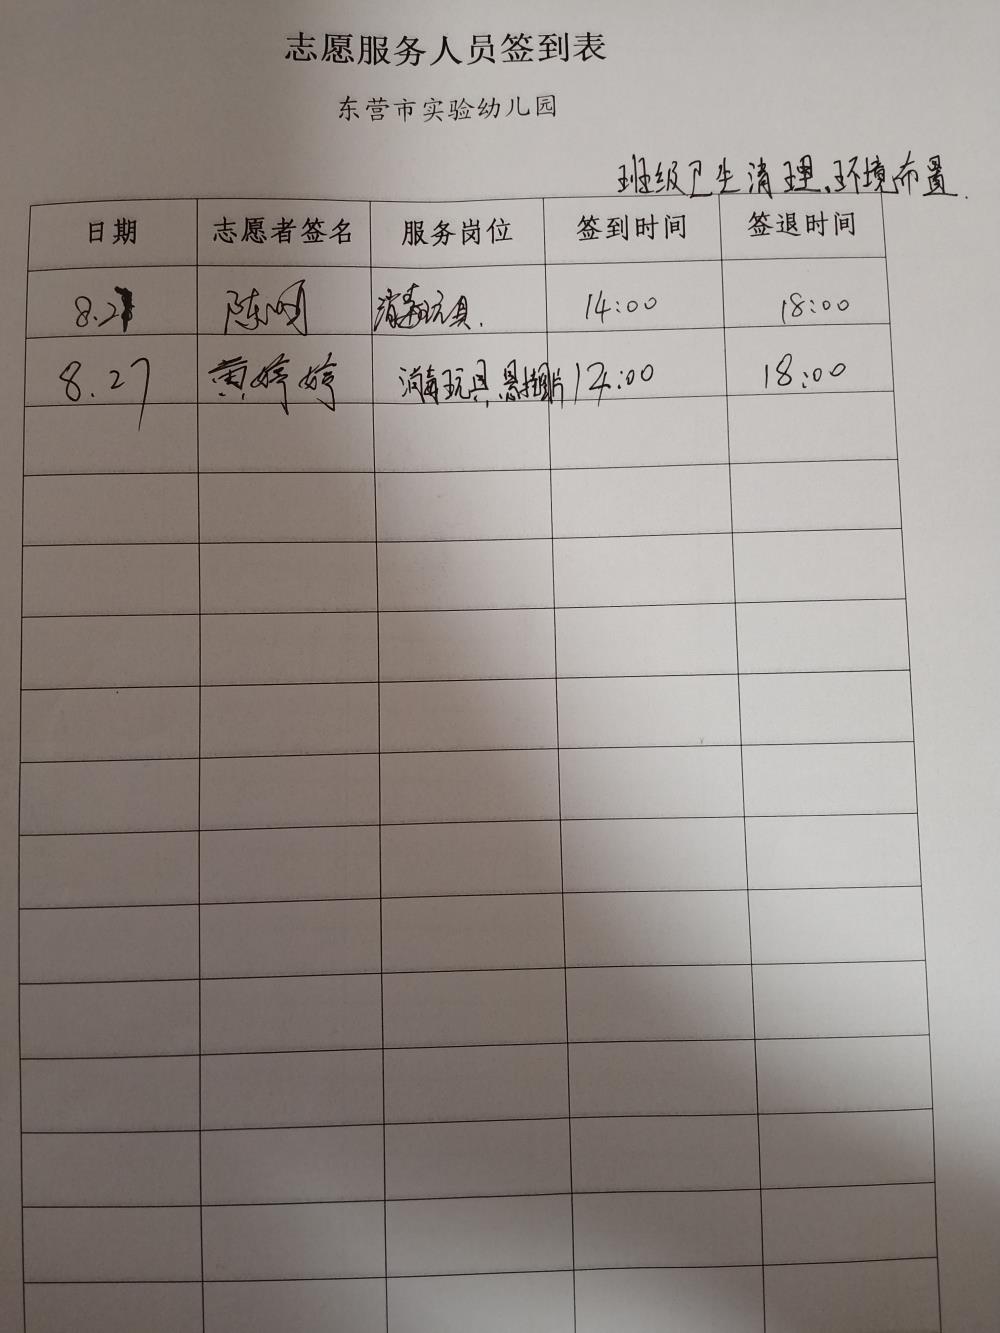 志愿服务人员签到表
东营市实验幼儿园
班级卫生清理、环境布置.
日期 志愿者签名 服务岗位 签到时间 签退时间
8.27 陈明 消毒玩具. 14:00 18:00
8.27 黄婷婷 消毒玩具,悬挂图片 14:00 18:00